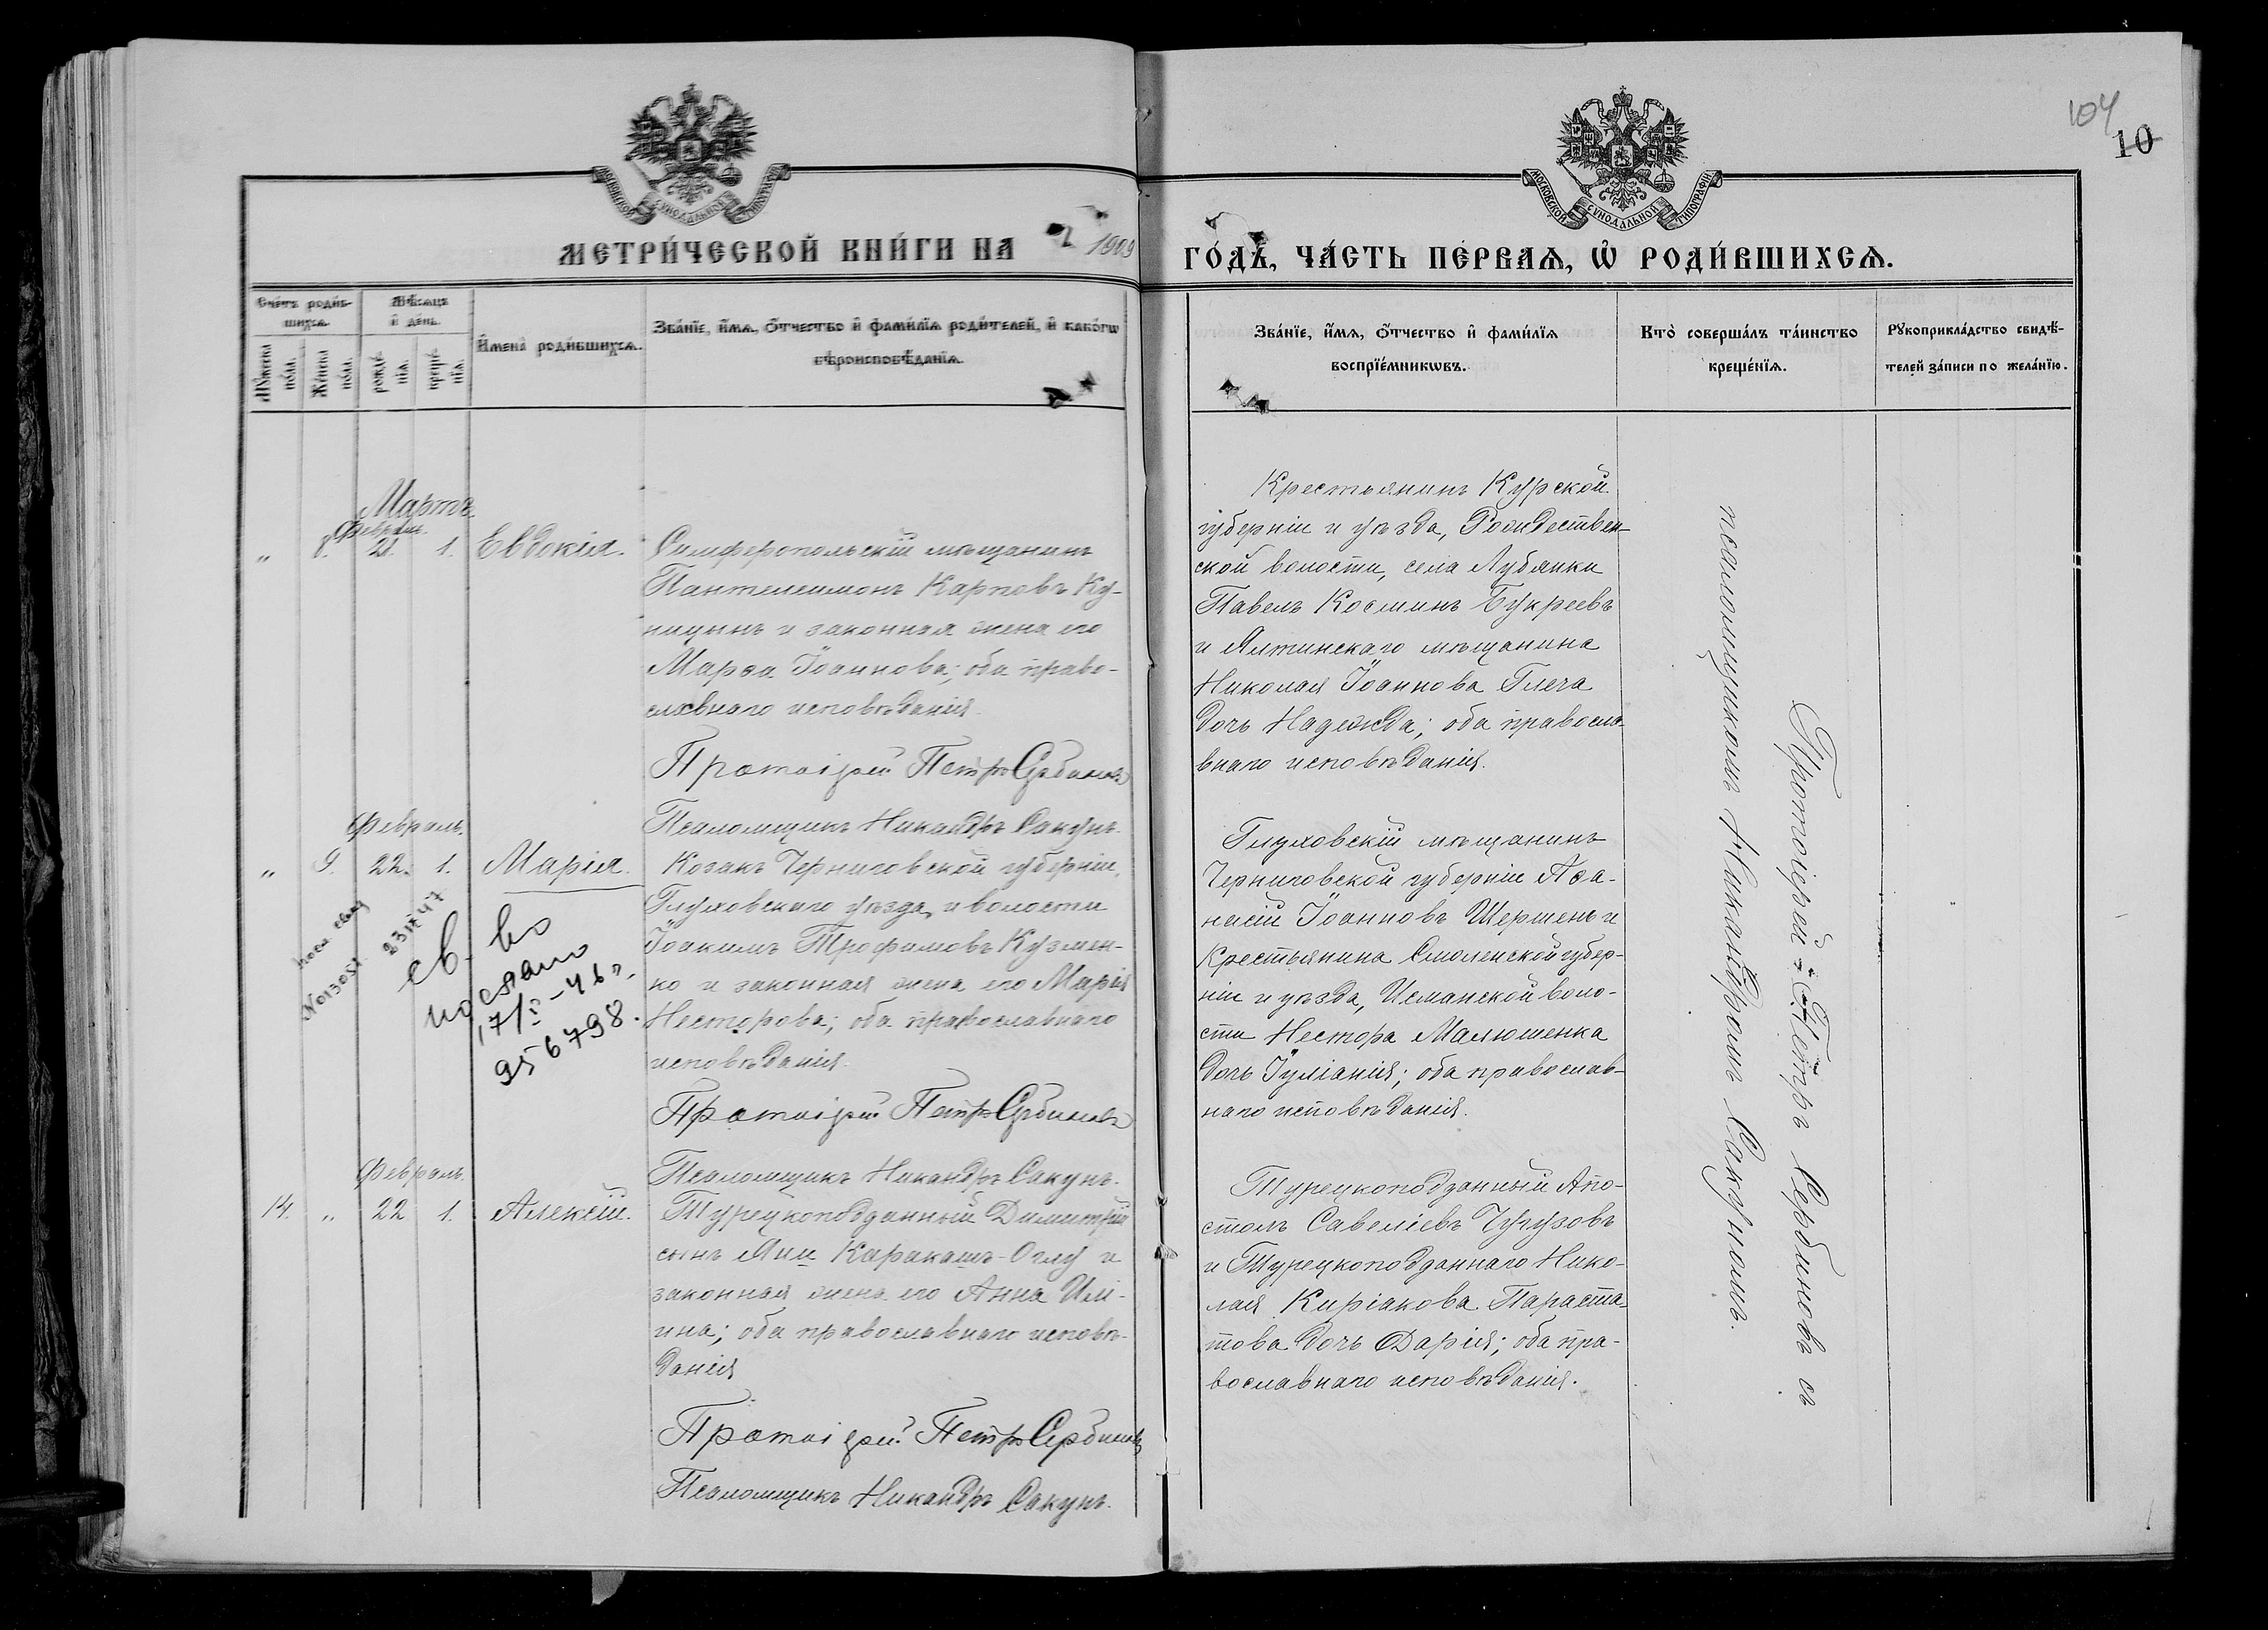 104
10
МОСКОВСКОЙ СѴНОДАЛЬНОЙ ТИПОГРАФІИ
МОСКОВСКОЙ СѴНОДАЛЬНОЙ ТИПОГРАФІИ
МЕТРИ́ЧЕСКОЙ КНИ́ГИ НА 1909
ГО́ДЪ, ЧА́СТЬ ПЕ́РВАѦ, Ѡ҆ РОДИ́ВШИХСѦ.
Сче́тъ роди́в-
шихсѧ.
Мꙋ́жеска по́ла.
Же́нска по́ла.
Мѣ́сѧцъ
и҆ де́нь.
рожде́-
нїѧ.
креще́-
нїѧ.
И҆мена̀ роди́вшихсѧ.
Зва́нїе, и҆́мѧ, ѻ҆́тчество и҆ фами́лїѧ роди́телей, и҆ како́гѡ
вѣроисповѣ́данїѧ.
Зва́нїе, и҆́мѧ, ѻ҆́тчество и҆ фами́лїѧ
воспрїе́мникѡвъ.
Кто̀ соверша́лъ та́инство
креще́нїѧ.
Рꙋкоприкла́дство свидѣ́-
телей за́писи по жела́нїю.
Мартъ.
Февраль.
„ 8. 21. 1. Евдокія.
Симферопольскій мѣщанинъ
Пантелеимонъ Карповъ Ку-
ницынъ и законная жена его
Марѳа Іоаннова; оба право-
славнаго исповѣданія.
Протоіерей Петръ Сербиновъ
Псаломщикъ Никандръ Сакунъ.
Крестьянинъ Курской
губерніи и уѣзда, Рождествен-
ской волости, села Лубянки
Павелъ Косминъ Букреевъ
и Ялтинскаго мѣщанина
Николая Іоаннова Глеча
дочь Надежда; оба правосла-
внаго исповѣданія.
Февраль.
„ 9. 22. 1. Марія.
Козакъ Черниговской губерніи,
Глуховскаго уѣзда, и волости
Іоакимъ Трофимовъ Кузмен-
ко и законная жена его Марія
Несторова; оба православнаго
исповѣданія.
Протоіерей Петръ Сербиновъ
Псаломщикъ Никандръ Сакунъ.
св-во
послано
17/I-46 г.
956798.
Глуховскій мѣщанинъ
Черниговской губерніи Аѳа-
насій Іоанновъ Шершень и
крестьянина Смоленской губер-
ніи и уѣзда, Цеманской воло-
сти Нестора Малюшенка
дочь Іуліанія; оба православ-
наго исповѣданія.
Февраль.
14. „ 22 1. Алексій.
Турецкоподданный Димитрій
сынъ Яни Каракашъ-Оглу и
законная жена его Анна Илі-
ина; оба православнаго исповѣ-
данія
Протоіерей Петръ Сербиновъ
Псаломщикъ Никандръ Сакунъ.
Турецкоподданный Апо-
столъ Савеліевъ Чугузовъ
и Турецкоподданнаго Нико-
лая Киріакова Параста-
това дочь Дарія; оба пра-
вославнаго исповѣданія.
Протоіерей Петръ Сербиновъ съ
псаломщикомъ Никандромъ Сакуномъ.